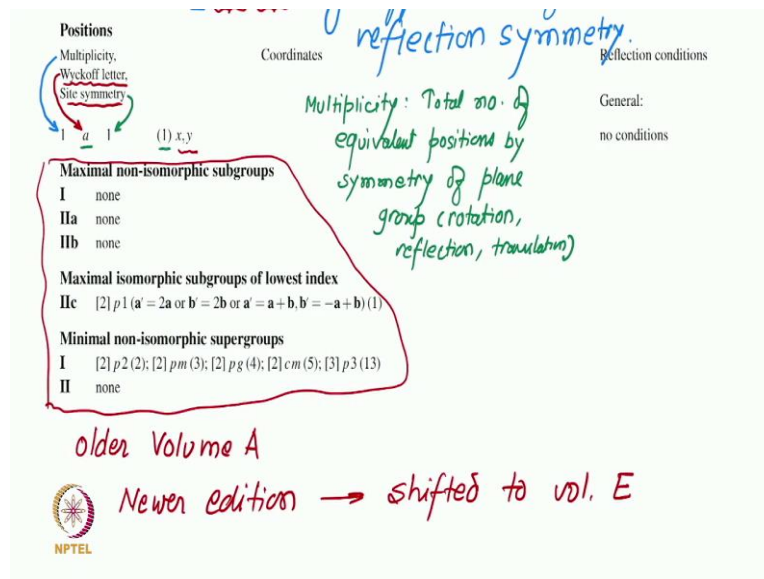 reflection symmetry.
Positions
Multiplicity,
Wyckoff letter,
Site symmetry
Coordinates
Reflection conditions
General:
1 a 1 (1) x,y
no conditions
Multiplicity: Total no. of
equivalent positions by
symmetry of plane
group (rotation,
reflection, translation)
Maximal non-isomorphic subgroups
I none
IIa none
IIb none
Maximal isomorphic subgroups of lowest index
IIc [2] p1 (a′ = 2a or b′ = 2b or a′ = a + b, b′ = −a + b) (1)
Minimal non-isomorphic supergroups
I [2] p2 (2); [2] pm (3); [2] pg (4); [2] cm (5); [3] p3 (13)
II none
older Volume A
Newer edition → shifted to vol. E
NPTEL